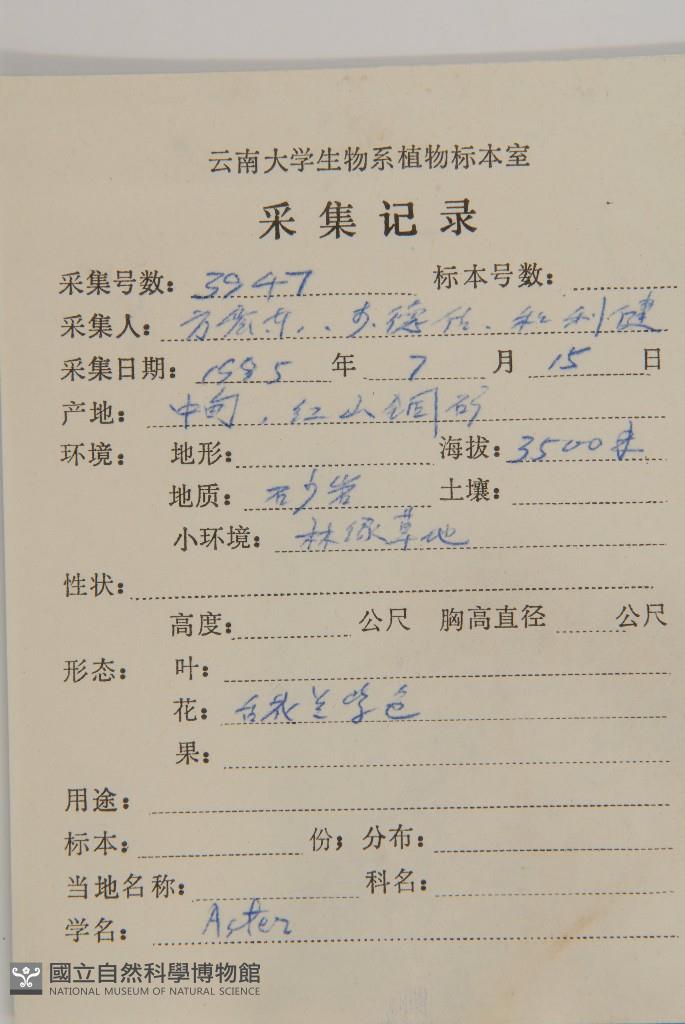 云南大学生物系植物标本室
采集记录
采集号数: 3947 标本号数:
采集人: 方 、 德 、和利健
采集日期: 1985 年 7 月 15 日
产地: 中甸、红山铜矿
环境: 地形: 海拔: 3500米
地质: 石少岩 土壤:
小环境: 林缘草地
性状:
高度: 公尺 胸高直径 公尺
形态: 叶:
花: 舌状兰紫色
果:
用途:
标本: 份; 分布:
当地名称: 科名:
学名: Aster
國立自然科學博物館
NATIONAL MUSEUM OF NATURAL SCIENCE